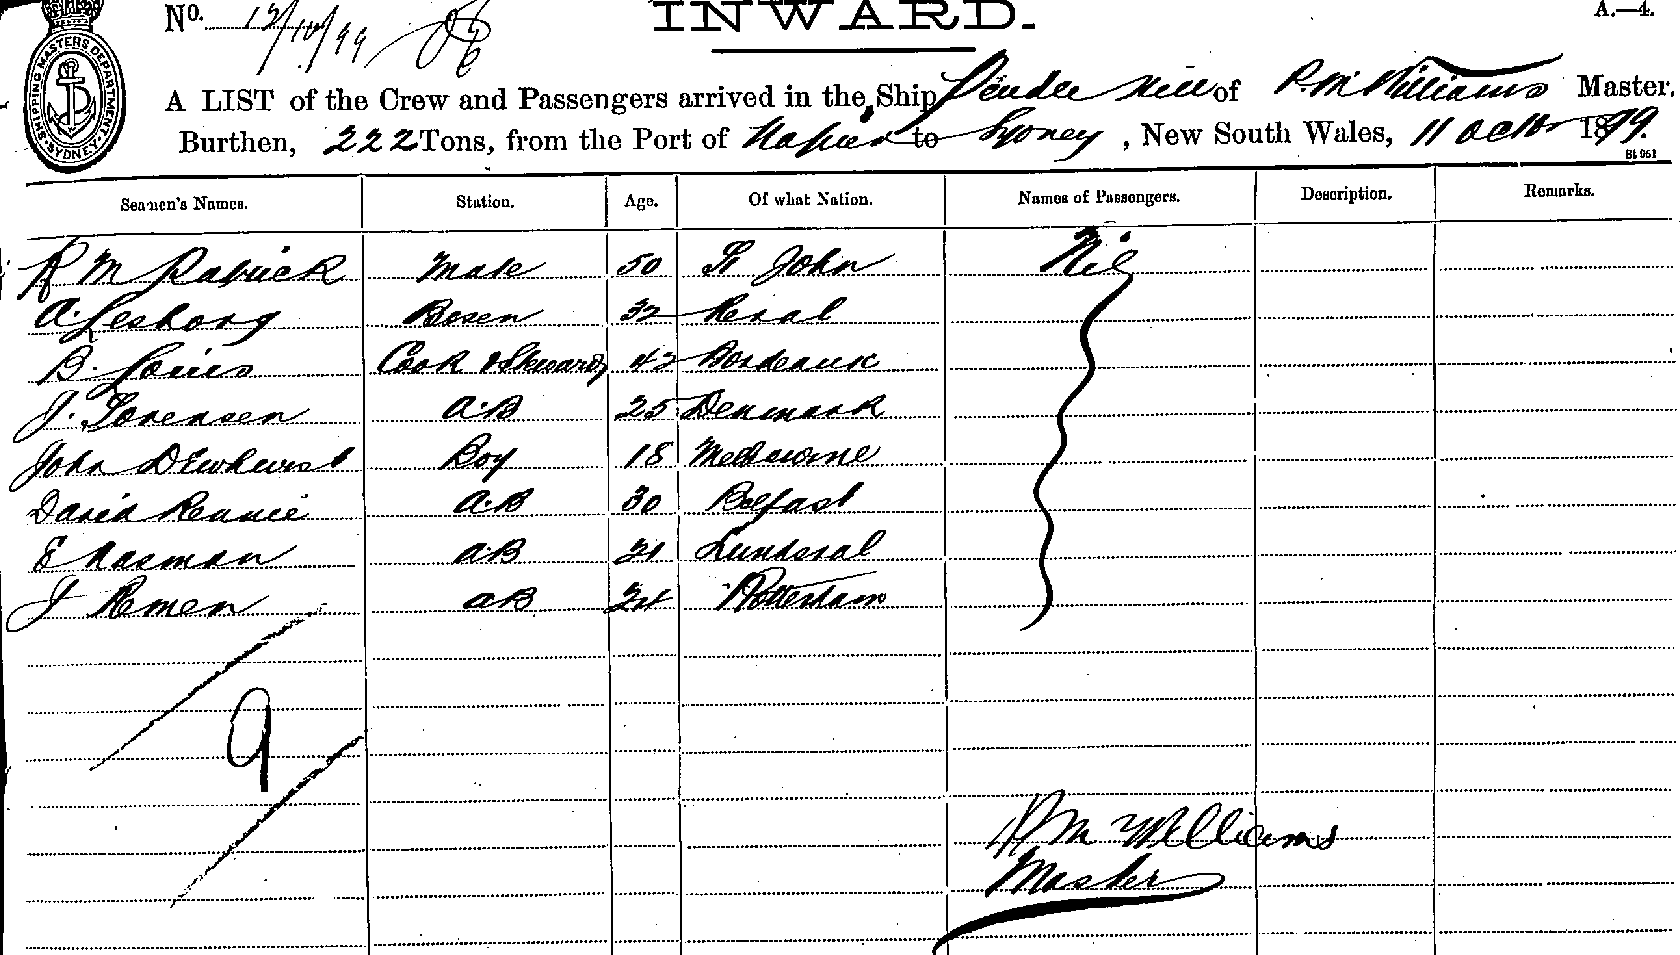 No. 12/10/99
INWARD.
A.—4.
SHIPPING MASTERS DEPARTMENT
SYDNEY.
A LIST of the Crew and Passengers arrived in the Ship Pendle Hill of R. M. Williams Master.
Burthen, 222 Tons, from the Port of Napier to Sydney, New South Wales, 11 Octbr 1899.
Seamen's Names. Station. Age. Of what Nation. Names of Passengers. Description. Remarks.
R M Mate 50 St John Nil
A. Bosen 32 Reval
B. Louis Cook & Steward 42 Bordeaux
J. Sorensen A.B 25 Denmark
John Dewhurst Boy 18 Melbourne
David Rennie A.B 30 Belfast
E Nasman A.B 21
J Remen AB 24
9
R M Williams
Master